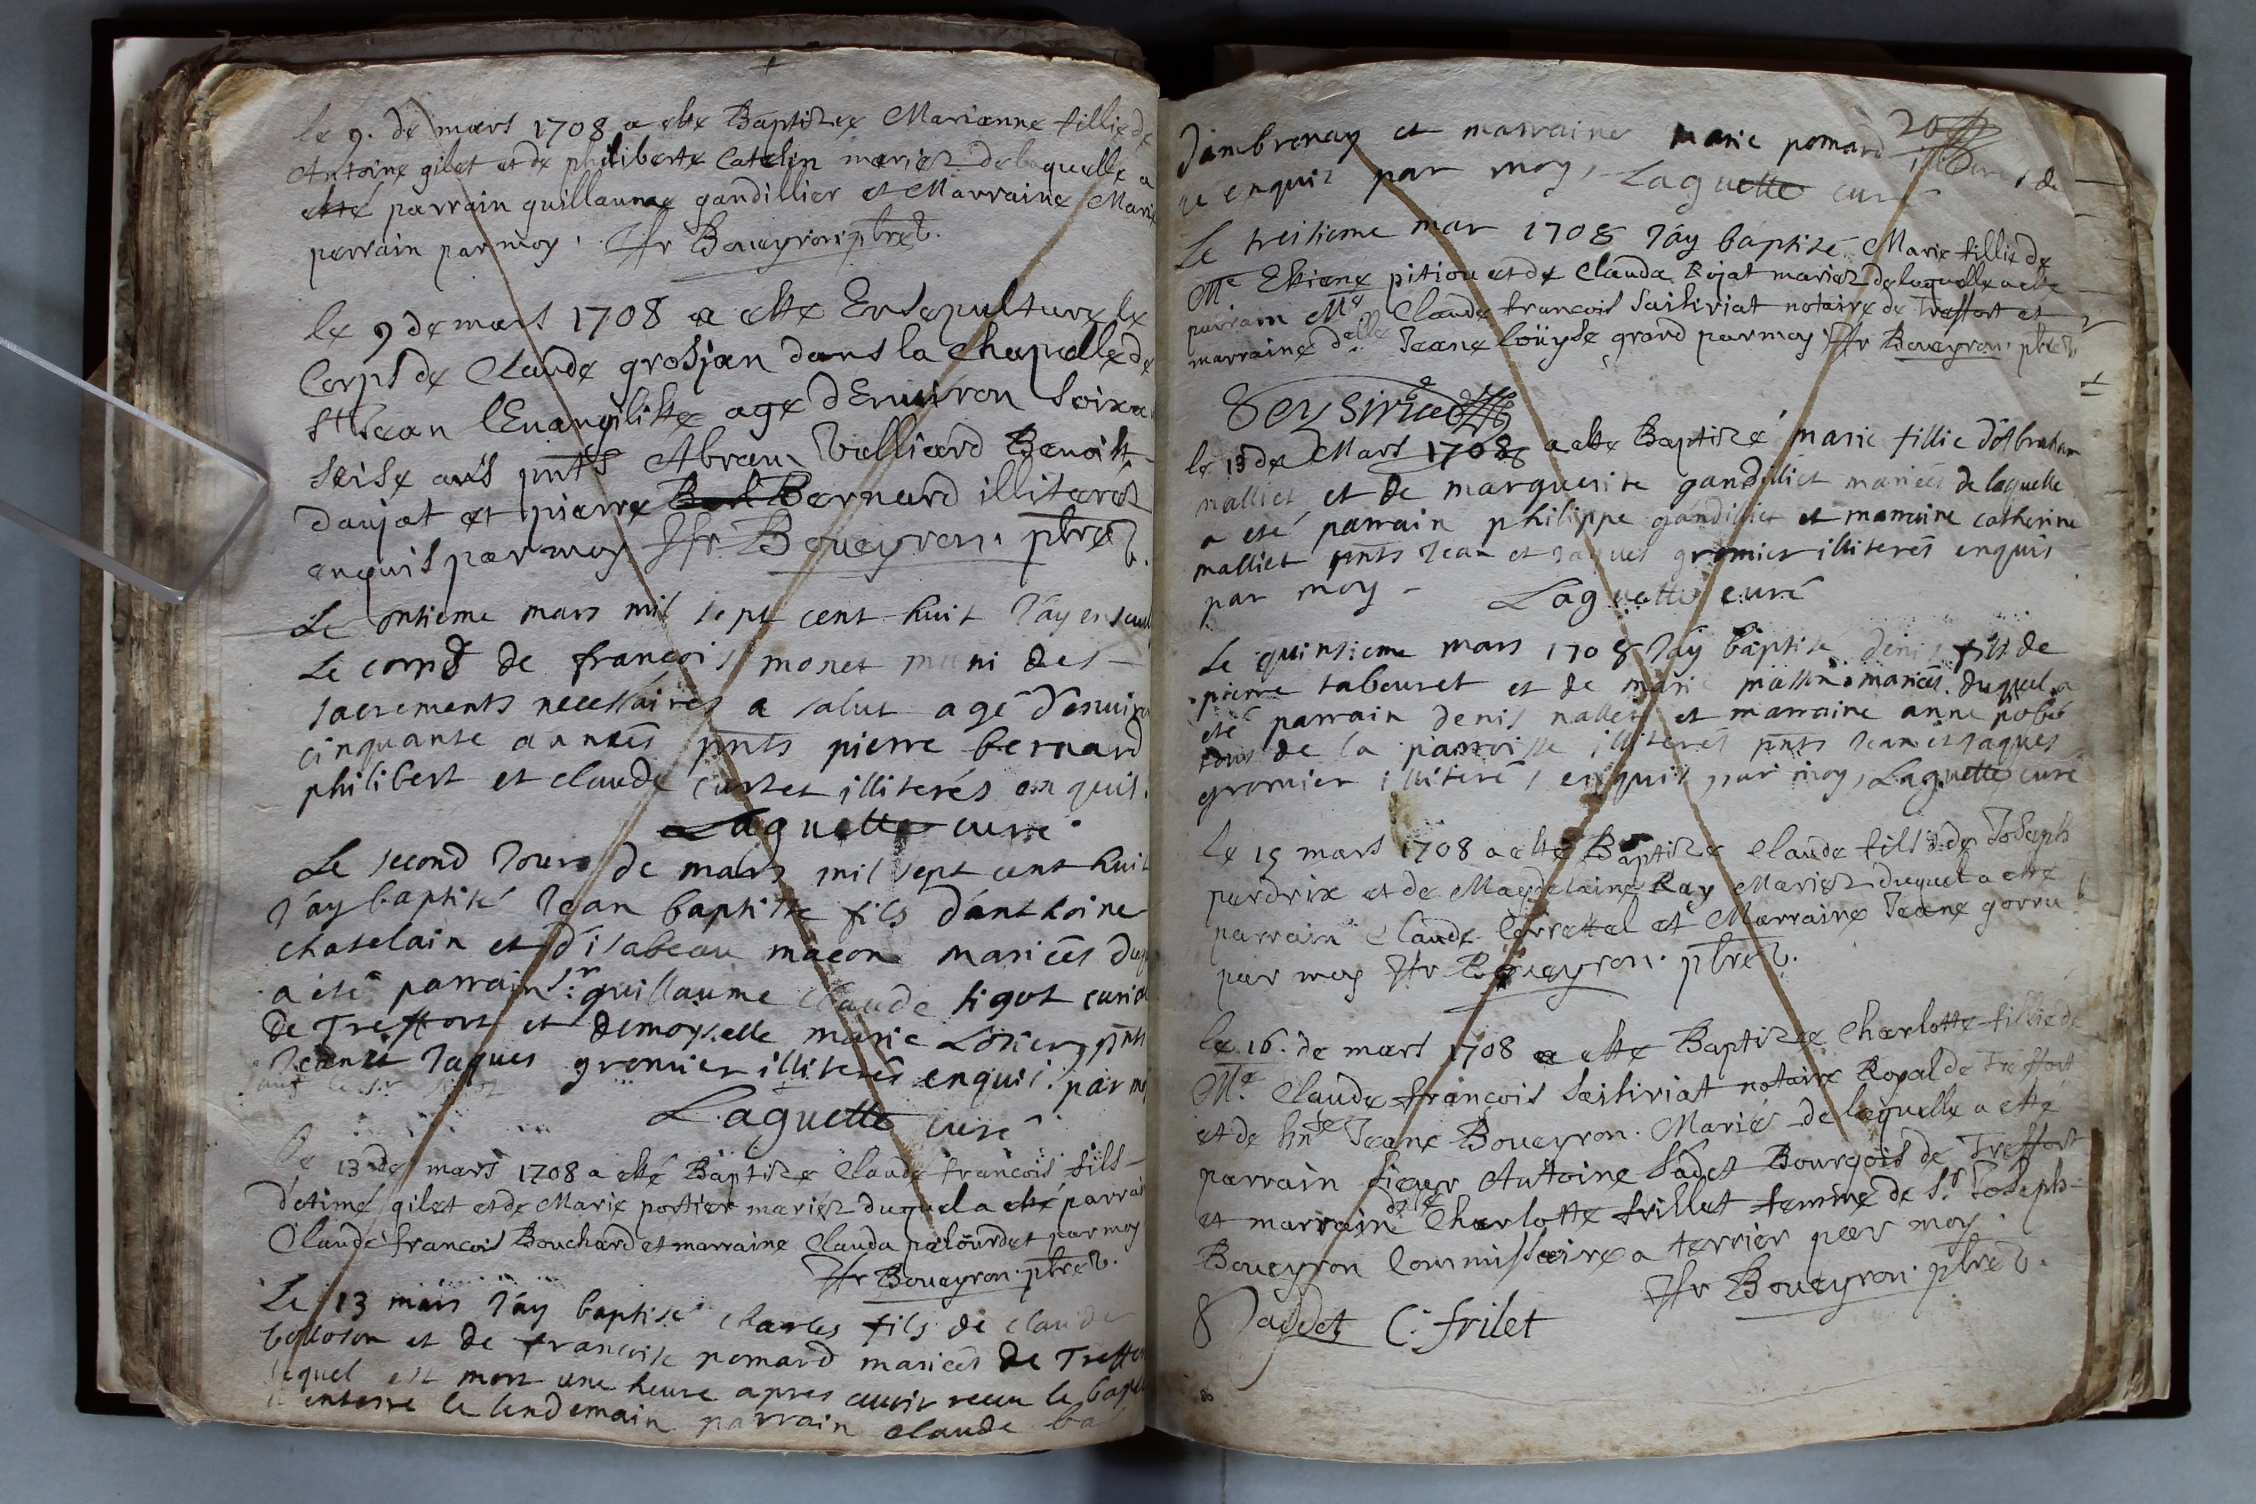 le 9. de mars 1708 a este Baptizee Marianne fillie de
Antoine gilet et de philiberte Catelin mariez de laquelle a
esté parrain guillaume gandillier et Marraine Marie
perrain par moy. Boueyron ptre
le 9 de mars 1708 a este Ensepulture le
Corps de Claude grosjan dans la chapelle de
St Jean lEuangiliste age dEnuiron Soixan
seise ans pnts Abram Valliard Benoist
daujat et pierre Bernard illiterez
enquis par moy Boueyron. ptre
Le onsieme mars mil sept cent huit J'ay enseul
Le corps de françois monet muni des
sacrements necessaires a salut agé d'enuiron
cinquante années pnts pierre bernard
philibert et claude curtet illiterés enquis.
Laguette curé
Le second Jour de mars mil sept cent huit
J'ay baptisé Jean baptiste fils d'anthoine
chatelain et d'isabeau macon mariées duq
a été parrain Sr: guillaume claude tigot curial
de Treffort et demoyselle marie pnts
Jean et Jaques gromier illiterés enquis. par mo
Laguette curé
Le 13 de mars 1708 a esté Baptize Claude francois fils
d'etime gilet et de Marie portier mariez duquel a esté parrai
Claude francois Bouchard et marraine Clauda palourdet par moy
Boueyron. ptre.
Le 13 mars J'ay baptisé charles fils de claude
bolloson et de francoise pomard mariées de Treffor
lequel est mort une heure apres auoir receu le bapt
enterré le lendemain parrain claude ba
d'ambronay et marraine marie pomard
enquis par moy, Laguette curé
20
Le treisieme mar 1708 J'ay baptisé Marie fillie de
Me Etiene pitiou et de Clauda Rojat mariez de laquelle a este
parrain Me Claude francois Saisiriat notaire de Treffort et
marraine delle Jeane loüyse grand par moy Boueyron. ptre
le 13 de Mars 1708 a este Baptizé marie fillie d'Abraham
malliet et de marguerite gandilliet mariées de laquelle
a esté parrain philippe gandillier et marraine catherine
malliet pnts Jean et Jaques gromier illiterés enquis
par moy - Laguette curé
Le quinsieme mars 1708 J'ay baptisé denis fils de
pierre tabouret et de marie mariées. duquel a
esté parrain denis nallet et marraine anne pobé
tous de la parroisse illiterés pnts Jean et Jaques
gromier illiterés, enquis, par moy, Laguette curé
le 15 mars 1708 a esté Baptize Claude fils de Joseph
perdrix et de Magdelaine Ray Mariez duquel a esté
parrain Claude Corretel et Marraine Jeane gorru
par moy Boueyron. ptre.
le 16. de mars 1708 a este Baptizee Charlotte fillie de
Me. Claude françois Saisiriat notaire Royal de Treffort
et de hnte Jeane Boueyron. Mariés de laquelle a esté
parrain sieur Antoine Sadet Bourgois de Treffort
et marrain delle Charlotte frillet femme de Sr Joseph
Boueyron Commissaire a terrier par moy.
Boueyron. ptre.
Saddet C. frilet